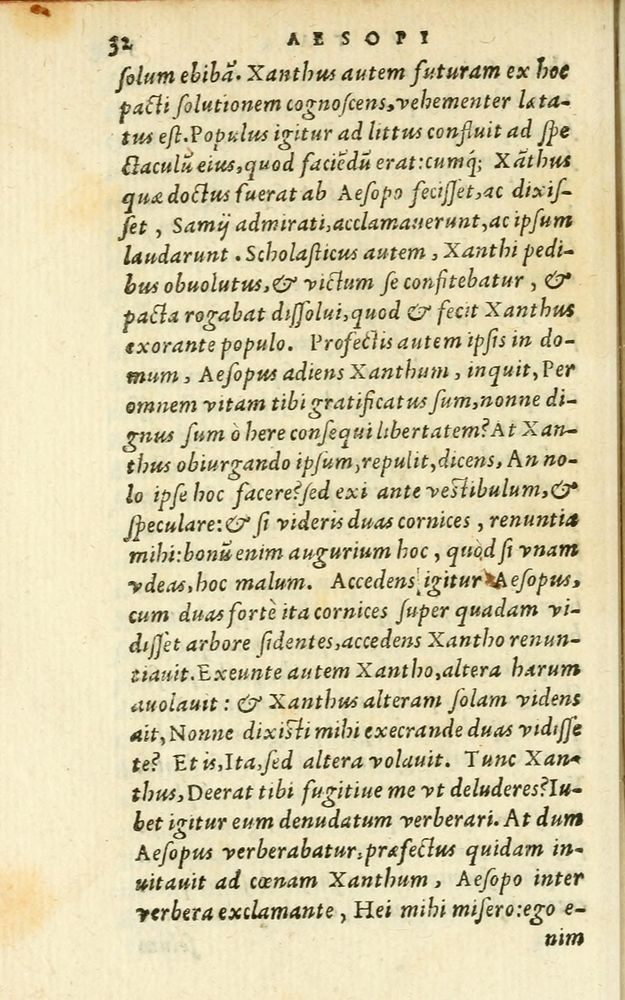 32 AESOPI
ſolum ebibā. Xanthus autem futuram ex hoc
pacti ſolutionem cognoſcens, vehementer læta-
tus eſt. Populus igitur ad littus confluit ad ſpe
ctaculū eius, quod faciēdū erat: cumq́; Xāthus
quæ doctus fuerat ab Aeſopo feciſſet, ac dixiſ-
ſet, Samij admirati, acclamauerunt, ac ipſum
laudarunt. Scholaſticus autem, Xanthi pedi-
bus obuolutus, & victum ſe confitebatur, &
pacta rogabat diſſolui, quod & fecit Xanthus
exorante populo. Profectis autem ipſis in do-
mum, Aeſopus adiens Xanthum, inquit, Per
omnem vitam tibi gratificatus ſum, nonne di-
gnus ſum ò here conſequi libertatem? At Xan-
thus obiurgando ipſum, repulit, dicens, An no-
lo ipſe hoc facere? ſed exi ante veſtibulum, &
ſpeculare: & ſi videris duas cornices, renuntia
mihi: bonū enim augurium hoc, quòd ſi vnam
vdeas, hoc malum. Accedens igitur Aeſopus,
cum duas fortè ita cornices ſuper quadam vi-
diſſet arbore ſidentes, accedens Xantho renun-
tiauit. Exeunte autem Xantho, altera harum
auolauit: & Xanthus alteram ſolam videns
ait, Nonne dixiſti mihi execrande duas vidiſſe
te? Et is, Ita, ſed altera volauit. Tunc Xan-
thus, Deerat tibi fugitiue me vt deluderes? Iu-
bet igitur eum denudatum verberari. At dum
Aeſopus verberabatur, præfectus quidam in-
uitauit ad cœnam Xanthum, Aeſopo inter
verbera exclamante, Hei mihi miſero: ego e-
nim